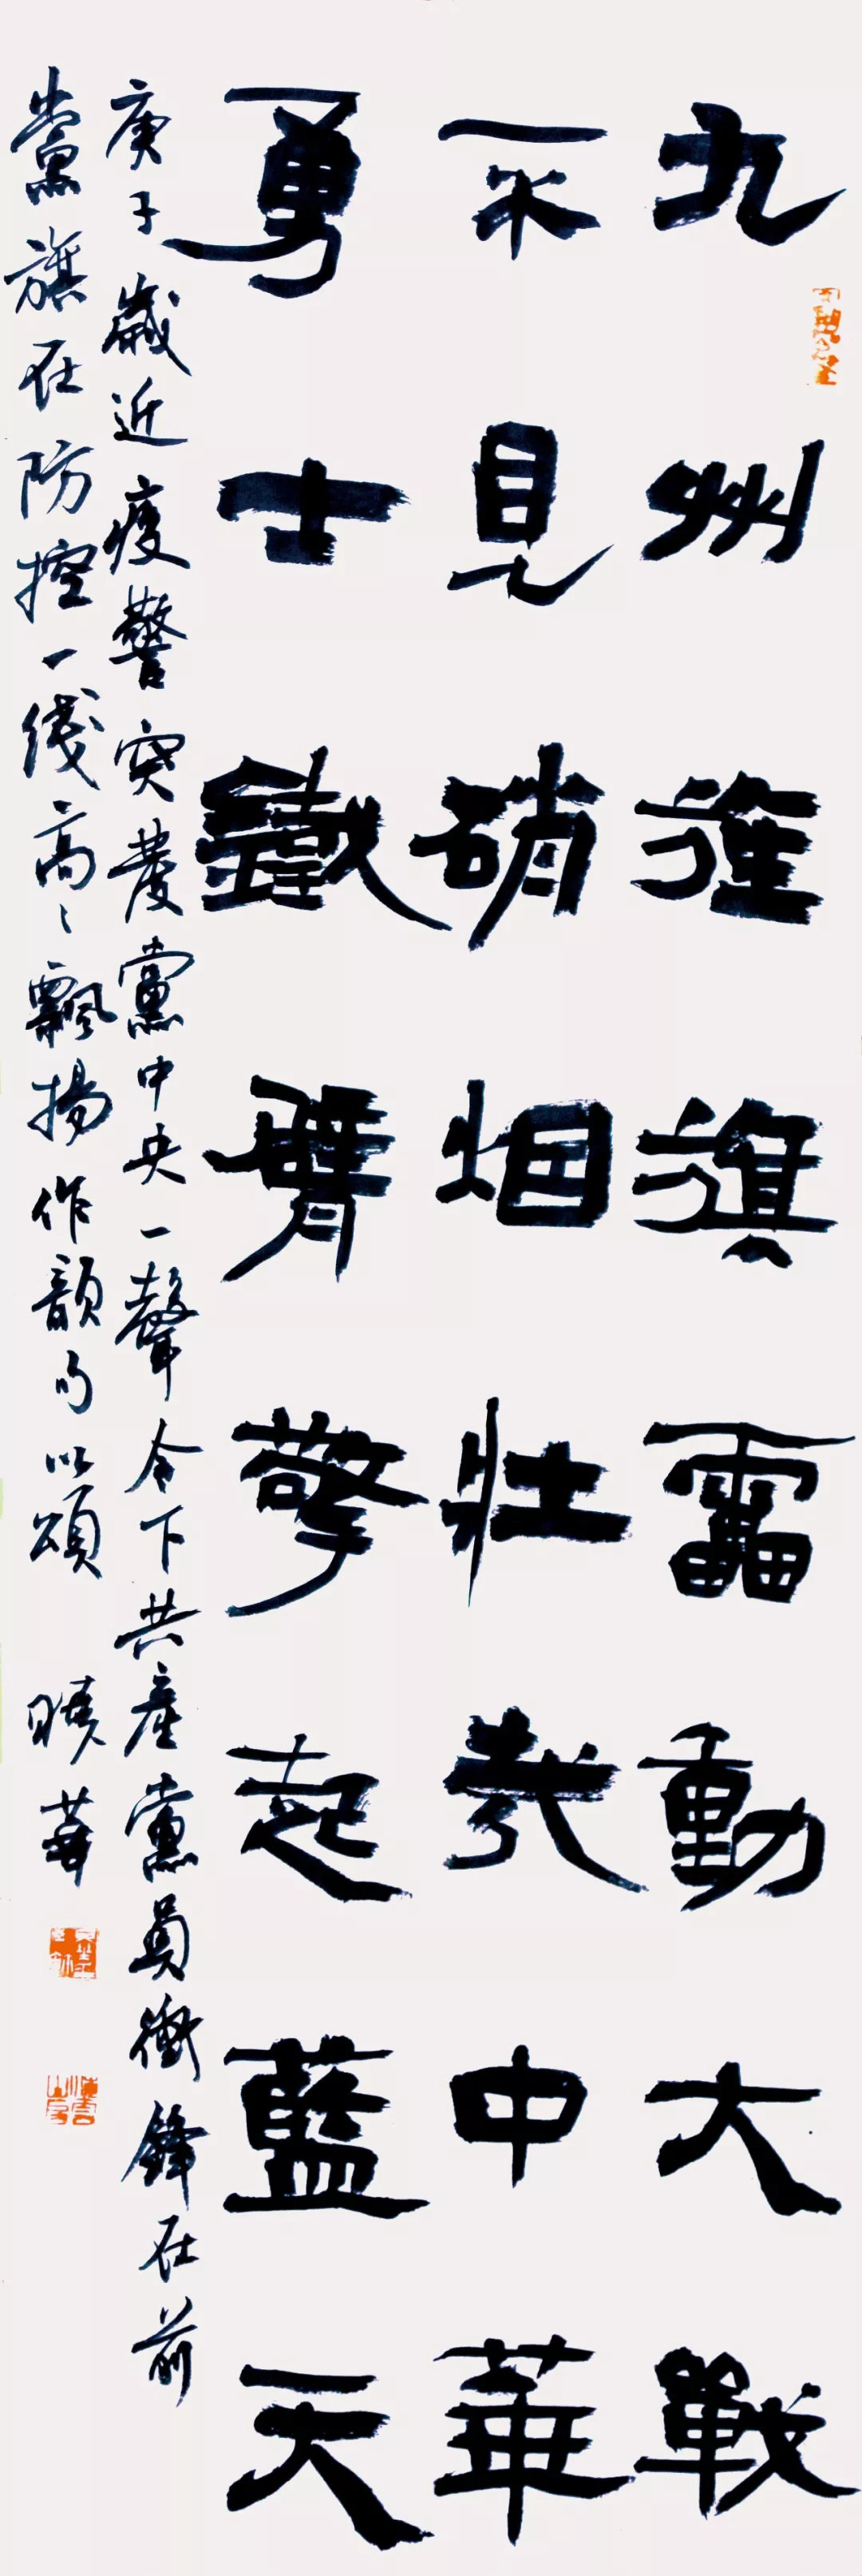 九州旌旗靁動大戰
不見硝烟壯哉中華
勇士鐵臂擎起藍天
庚子歲近疫警突發黨中央一聲令下共產黨員衝鋒在前
黨旗在防控一线高高飄揚作韻句以頌 曉華